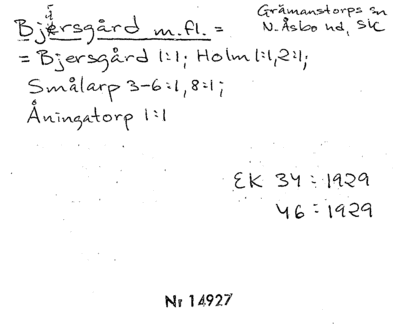 Bjersgård m.fl. =
Grämanstorps sn
N. Åsbo hd, SLK
= Bjersgård 1:1; Holm 1:1, 2:1;
Smålarp 3-6:1, 8:1;
Åningatorp 1:1
EK 34 : 1929
46 : 1929
Nr 14927